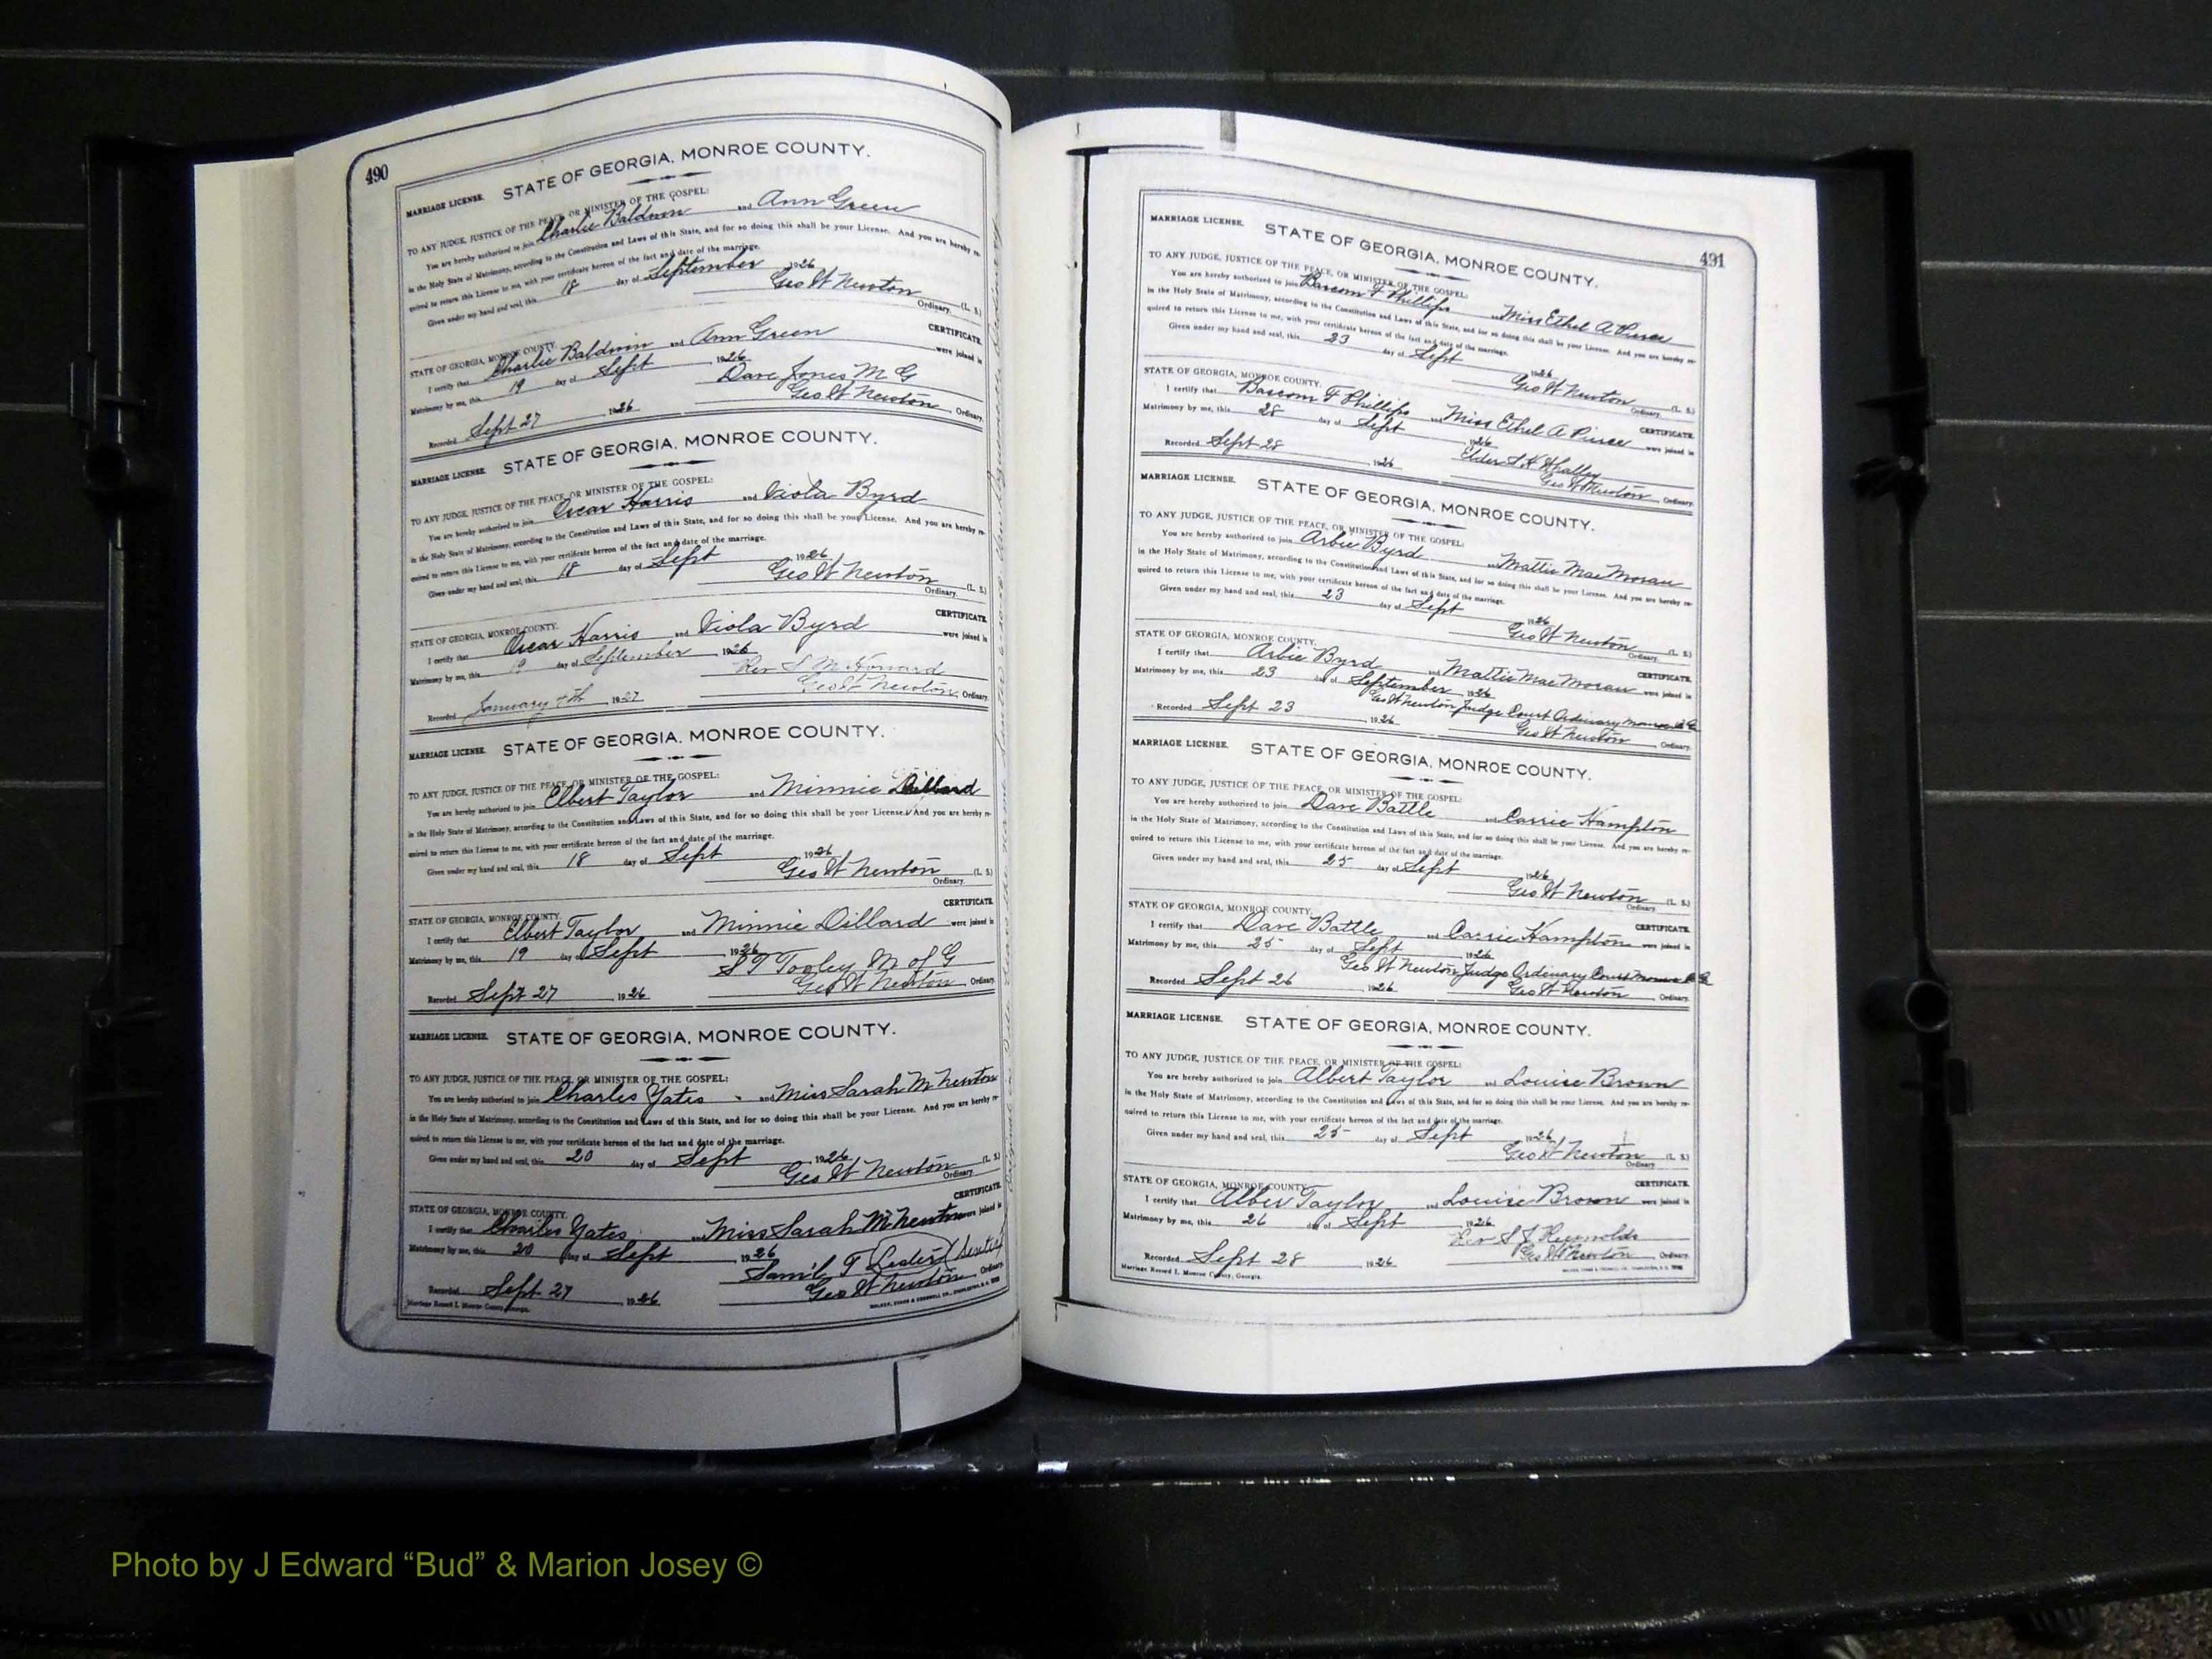 490
MARRIAGE LICENSE. STATE OF GEORGIA, MONROE COUNTY.
TO ANY JUDGE, JUSTICE OF THE PEACE, OR MINISTER OF THE GOSPEL:
You are hereby authorized to join Charlie Baldwin and Ann Green
in the Holy State of Matrimony, according to the Constitution and Laws of this State, and for so doing this shall be your License. And you are hereby re-
quired to return this License to me, with your certificate hereon of the fact and date of the marriage.
Given under my hand and seal, this 18 day of September 1926
Geo W Newton (L. S.)
Ordinary.
CERTIFICATE.
STATE OF GEORGIA, MONROE COUNTY.
I certify that Charlie Baldwin and Ann Green were joined in
Matrimony by me, this 19 day of Sept 1926
Dave Jones M G
Recorded Sept 27 1926 Geo W Newton Ordinary.
MARRIAGE LICENSE. STATE OF GEORGIA, MONROE COUNTY.
TO ANY JUDGE, JUSTICE OF THE PEACE, OR MINISTER OF THE GOSPEL:
You are hereby authorized to join Oscar Harris and Viola Byrd
in the Holy State of Matrimony, according to the Constitution and Laws of this State, and for so doing this shall be your License. And you are hereby re-
quired to return this License to me, with your certificate hereon of the fact and date of the marriage.
Given under my hand and seal, this 18 day of Sept 1926
Geo W Newton (L. S.)
Ordinary.
CERTIFICATE.
STATE OF GEORGIA, MONROE COUNTY.
I certify that Oscar Harris and Viola Byrd were joined in
Matrimony by me, this 19 day of September 1926
Rev S M Howard
Recorded January 7th 1927 Geo W Newton Ordinary.
MARRIAGE LICENSE. STATE OF GEORGIA, MONROE COUNTY.
TO ANY JUDGE, JUSTICE OF THE PEACE, OR MINISTER OF THE GOSPEL:
You are hereby authorized to join Elbert Taylor and Minnie Dillard
in the Holy State of Matrimony, according to the Constitution and Laws of this State, and for so doing this shall be your License. And you are hereby re-
quired to return this License to me, with your certificate hereon of the fact and date of the marriage.
Given under my hand and seal, this 18 day of Sept 1926
Geo W Newton (L. S.)
Ordinary.
CERTIFICATE.
STATE OF GEORGIA, MONROE COUNTY.
I certify that Elbert Taylor and Minnie Dillard were joined in
Matrimony by me, this 19 day of Sept 1926
S T Tooley M of G
Recorded Sept 27 1926 Geo W Newton Ordinary.
MARRIAGE LICENSE. STATE OF GEORGIA, MONROE COUNTY.
TO ANY JUDGE, JUSTICE OF THE PEACE, OR MINISTER OF THE GOSPEL:
You are hereby authorized to join Charles Yates and Miss Sarah M Newton
in the Holy State of Matrimony, according to the Constitution and Laws of this State, and for so doing this shall be your License. And you are hereby re-
quired to return this License to me, with your certificate hereon of the fact and date of the marriage.
Given under my hand and seal, this 20 day of Sept 1926
Geo W Newton (L. S.)
Ordinary.
CERTIFICATE.
STATE OF GEORGIA, MONROE COUNTY.
I certify that Charles Yates and Miss Sarah M Newton were joined in
Matrimony by me, this 20 day of Sept 1926
Sam'l T
Recorded Sept 27 1926 Geo W Newton Ordinary.
Marriage Record I, Monroe County, Georgia.
491
MARRIAGE LICENSE. STATE OF GEORGIA, MONROE COUNTY.
TO ANY JUDGE, JUSTICE OF THE PEACE, OR MINISTER OF THE GOSPEL:
You are hereby authorized to join Bascom F Phillips and Miss Ethel A Pierce
in the Holy State of Matrimony, according to the Constitution and Laws of this State, and for so doing this shall be your License. And you are hereby re-
quired to return this License to me, with your certificate hereon of the fact and date of the marriage.
Given under my hand and seal, this 23 day of Sept 1926
Geo W Newton (L. S.)
Ordinary.
CERTIFICATE.
STATE OF GEORGIA, MONROE COUNTY.
I certify that Bascom F Phillips and Miss Ethel A Pierce were joined in
Matrimony by me, this 28 day of Sept 1926
Elder S H Whalley
Recorded Sept 28 1926 Geo W Newton Ordinary.
MARRIAGE LICENSE. STATE OF GEORGIA, MONROE COUNTY.
TO ANY JUDGE, JUSTICE OF THE PEACE, OR MINISTER OF THE GOSPEL:
You are hereby authorized to join Arbie Byrd and Mattie Mae Moran
in the Holy State of Matrimony, according to the Constitution and Laws of this State, and for so doing this shall be your License. And you are hereby re-
quired to return this License to me, with your certificate hereon of the fact and date of the marriage.
Given under my hand and seal, this 23 day of Sept 1926
Geo W Newton (L. S.)
Ordinary.
CERTIFICATE.
STATE OF GEORGIA, MONROE COUNTY.
I certify that Arbie Byrd and Mattie Mae Moran were joined in
Matrimony by me, this 23 day of September 1926
Geo W Newton Judge Court Ordinary Monroe
Recorded Sept 23 1926 Geo W Newton Ordinary.
MARRIAGE LICENSE. STATE OF GEORGIA, MONROE COUNTY.
TO ANY JUDGE, JUSTICE OF THE PEACE, OR MINISTER OF THE GOSPEL:
You are hereby authorized to join Dave Battle and Carrie Hampton
in the Holy State of Matrimony, according to the Constitution and Laws of this State, and for so doing this shall be your License. And you are hereby re-
quired to return this License to me, with your certificate hereon of the fact and date of the marriage.
Given under my hand and seal, this 25 day of Sept 1926
Geo W Newton (L. S.)
Ordinary.
CERTIFICATE.
STATE OF GEORGIA, MONROE COUNTY.
I certify that Dave Battle and Carrie Hampton were joined in
Matrimony by me, this 25 day of Sept 1926
Geo W Newton Judge Ordinary Court Monroe
Recorded Sept 26 1926 Geo W Newton Ordinary.
MARRIAGE LICENSE. STATE OF GEORGIA, MONROE COUNTY.
TO ANY JUDGE, JUSTICE OF THE PEACE, OR MINISTER OF THE GOSPEL:
You are hereby authorized to join Albert Taylor and Louise Brown
in the Holy State of Matrimony, according to the Constitution and Laws of this State, and for so doing this shall be your License. And you are hereby re-
quired to return this License to me, with your certificate hereon of the fact and date of the marriage.
Given under my hand and seal, this 25 day of Sept 1926
Geo W Newton (L. S.)
Ordinary.
CERTIFICATE.
STATE OF GEORGIA, MONROE COUNTY.
I certify that Alber Taylor and Louise Brown were joined in
Matrimony by me, this 26 day of Sept 1926
Rev S L Reynolds
Recorded Sept 28 1926 Geo W Newton Ordinary.
Marriage Record I, Monroe County, Georgia.
Photo by J Edward “Bud” & Marion Josey ©